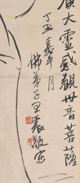 廣大靈感觀世音菩薩
丁丑嘉平月
佛弟子王震敬寫